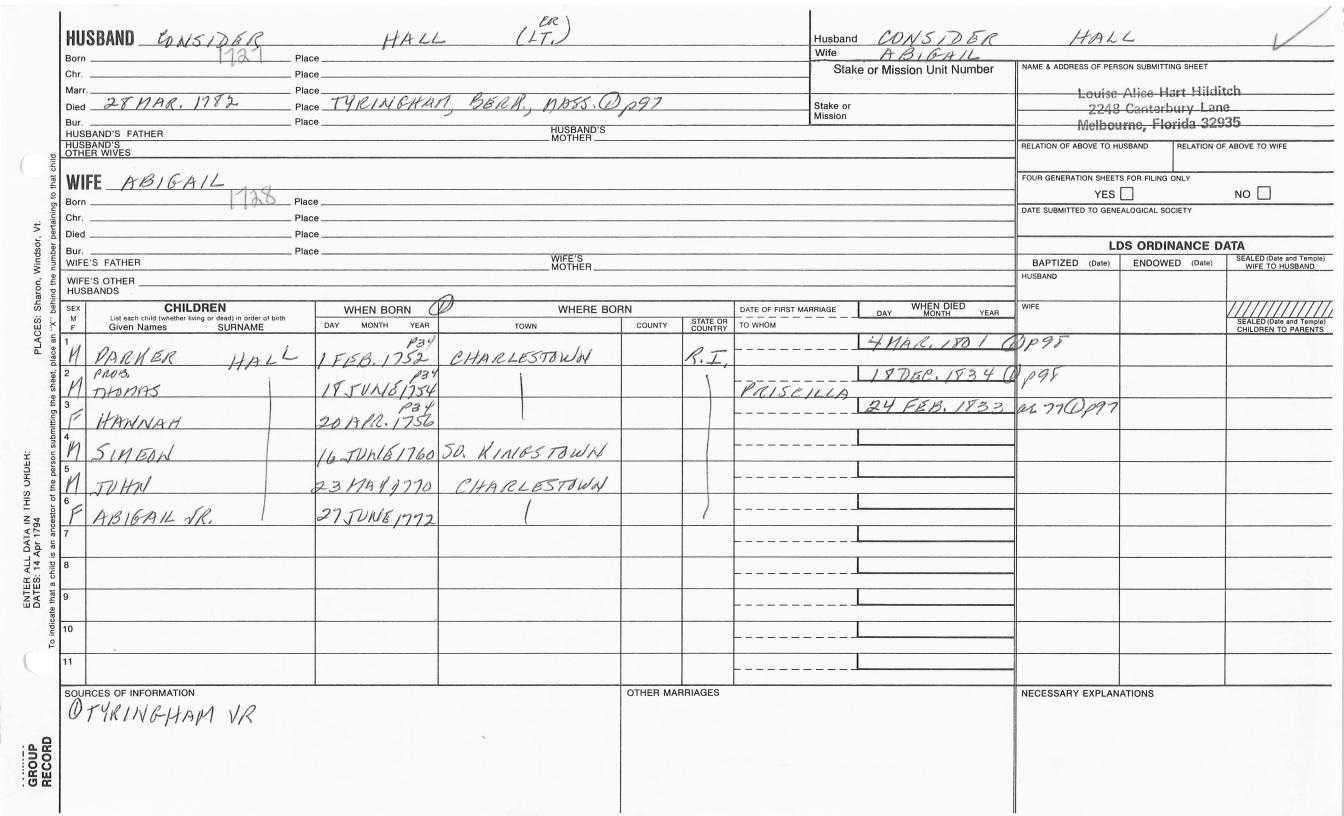 HUSBAND CONSIDER HALL (LT.)
Husband CONSIDER HALL
Born 1727 Place
Wife ABIGAIL
Chr. Place
Stake or Mission Unit Number
Marr. Place
Died 28 MAR. 1782 Place TYRINGHAM, BERK., MASS. ① p97
Stake or Mission
Bur. Place
NAME & ADDRESS OF PERSON SUBMITTING SHEET
Louise Alice Hart Hilditch
2248 Canterbury Lane
Melbourne, Florida 32935
HUSBAND'S FATHER HUSBAND'S MOTHER
HUSBAND'S OTHER WIVES
RELATION OF ABOVE TO HUSBAND RELATION OF ABOVE TO WIFE
WIFE ABIGAIL
FOUR GENERATION SHEETS FOR FILING ONLY
YES NO
Born 1728 Place
Chr. Place
DATE SUBMITTED TO GENEALOGICAL SOCIETY
Died Place
Bur. Place
WIFE'S FATHER WIFE'S MOTHER
WIFE'S OTHER HUSBANDS
LDS ORDINANCE DATA
BAPTIZED (Date) ENDOWED (Date) SEALED (Date and Temple) WIFE TO HUSBAND
HUSBAND
WIFE
SEALED (Date and Temple) CHILDREN TO PARENTS
SEX M F
CHILDREN
List each child (whether living or dead) in order of birth
Given Names SURNAME
WHEN BORN ①
DAY MONTH YEAR
WHERE BORN
TOWN COUNTY STATE OR COUNTRY
DATE OF FIRST MARRIAGE
TO WHOM
WHEN DIED
DAY MONTH YEAR
1 M PARKER HALL 1 FEB. 1752 p34 CHARLESTOWN R.I. 4 MAR. 1801 ① p98
2 M PROB. THOMAS 18 JUNE 1754 p34 PRISCILLA 18 DEC. 1834 ① p98
3 F HANNAH 20 APR. 1756 p34 24 FEB. 1833 ae 77 ① p97
4 M SIMEON 16 JUNE 1760 SO. KINGSTOWN
5 M JOHN 23 MAY 1770 CHARLESTOWN
6 F ABIGAIL JR. 27 JUNE 1772
7
8
9
10
11
SOURCES OF INFORMATION
① TYRINGHAM VR
OTHER MARRIAGES
NECESSARY EXPLANATIONS
PLACES: Sharon, Windsor, Vt.
ENTER ALL DATA IN THIS ORDER:
DATES: 14 Apr 1794
To indicate that a child is an ancestor of the person submitting the sheet, place an "X" behind the number pertaining to that child.
GROUP
RECORD